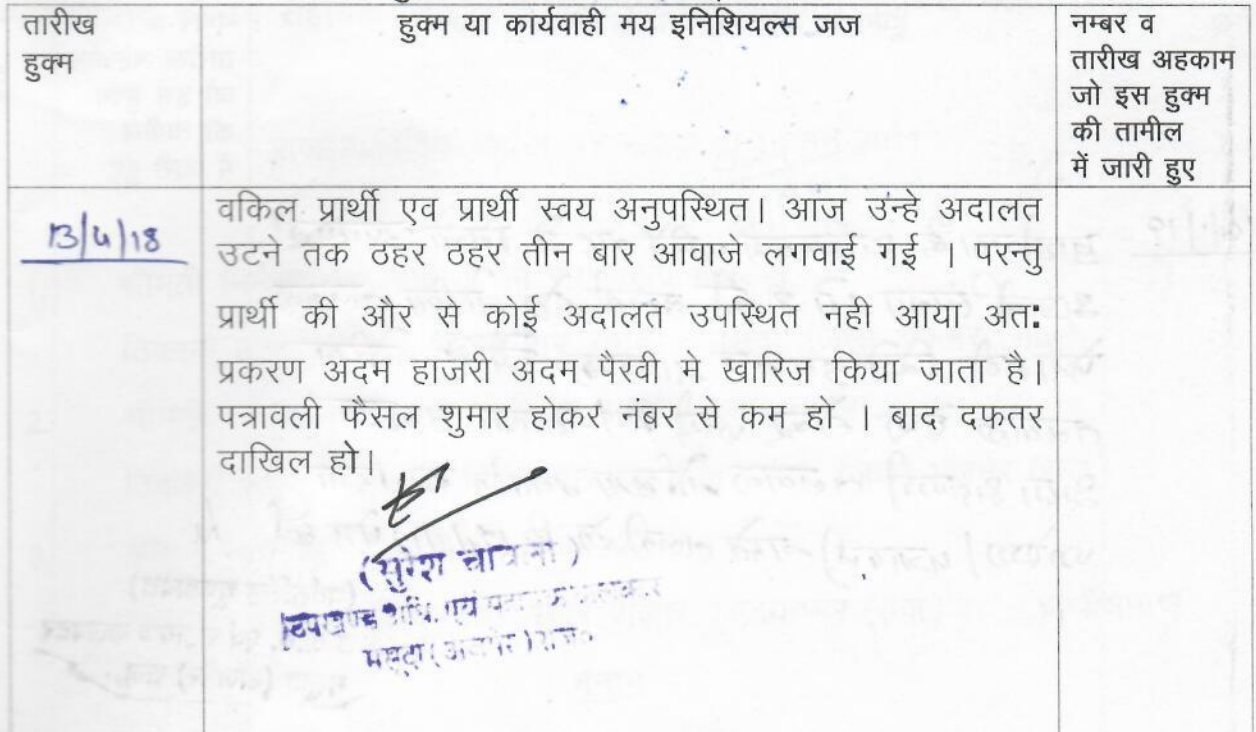 तारीख
हुक्म
हुक्म या कार्यवाही मय इनिशियल्स जज
नम्बर व
तारीख अहकाम
जो इस हुक्म
की तामील
में जारी हुए
13/4/18
वकिल प्रार्थी एव प्रार्थी स्वय अनुपस्थित। आज उन्हे अदालत
उटने तक ठहर ठहर तीन बार आवाजे लगवाई गई । परन्तु
प्रार्थी की और से कोई अदालत उपस्थित नही आया अत:
प्रकरण अदम हाजरी अदम पैरवी मे खारिज किया जाता है।
पत्रावली फैसल शुमार होकर नंबर से कम हो । बाद दफतर
दाखिल हो।
(सुरेश
उपखण्ड अधि. एवं
मसूदा (अजमेर) राज०